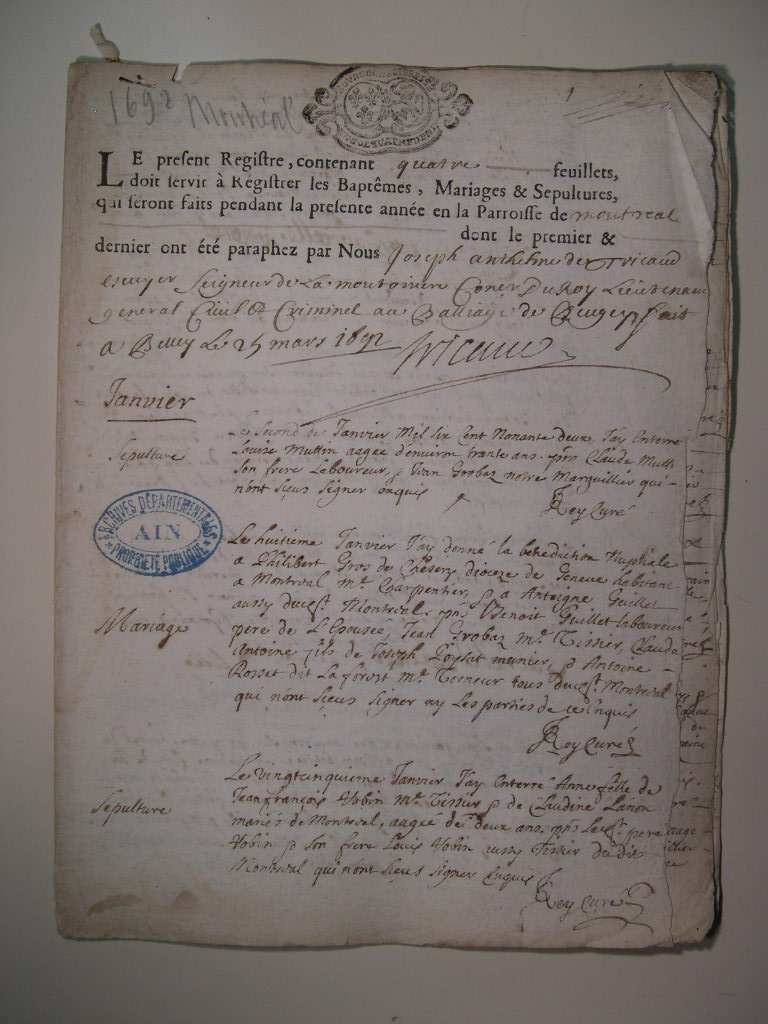 1692 Montréal
1
LE present Registre, contenant quatre feuillets,
doit servir à Régistrer les Baptêmes, Mariages & Sepultures,
qui seront faits pendant la presente année en la Parroisse de montreal
dont le premier &
dernier ont été paraphez par Nous Joseph anthelme de Tricaud
escuyer Seigneur de La Coner Du Roy Lieutenant
general Civil & Criminel au Balliage de Bugey fait
a Belley Le 25 mars 1692
Janvier
Sepulture
Le Second de Janvier Mil six Cent Nonante deux J'ay Enterré
Louise Muttin aagée d'environ trante ans. pnts Claude Mutti
son frere Laboureur, & Jean Grobaz notre Marguillier qui
nont sceus signer enquis
Rey Curé
ARCHIVES DÉPARTEMENTALES
AIN
PROPRIÉTÉ PUBLIQUE
Mariage
Le huitieme Janvier J'ay donné la benediction Nuptiale
a Philibert Gros de Chesery dioceze de Geneve habitant
a Montreal Me Charpentier, & a Antoigne Guillet
aussy dud. Montreal. pnts Benoit Guillet laboureur
pere de L'Epousée, Jean Grobaz Me Tissier, Claude
Antoine fils de Joseph meunier, & Antoine
Rosset dit La forest Me tous dud. Montreal
qui nont sceus signer ny les parties de ce Enquis
Rey Curé
Sepulture
Le Vingtcinquieme Janvier J'ay Enterré Anne fille de
Jean françois Vobin Me Tissier & de Claudine
mariés de Montreal, aagée de deux ans. pnts Led. pere
Vobin & son frere Louis Vobin aussy Tissier dudit
Montreal qui nont sceus signer Enquis
Rey Curé